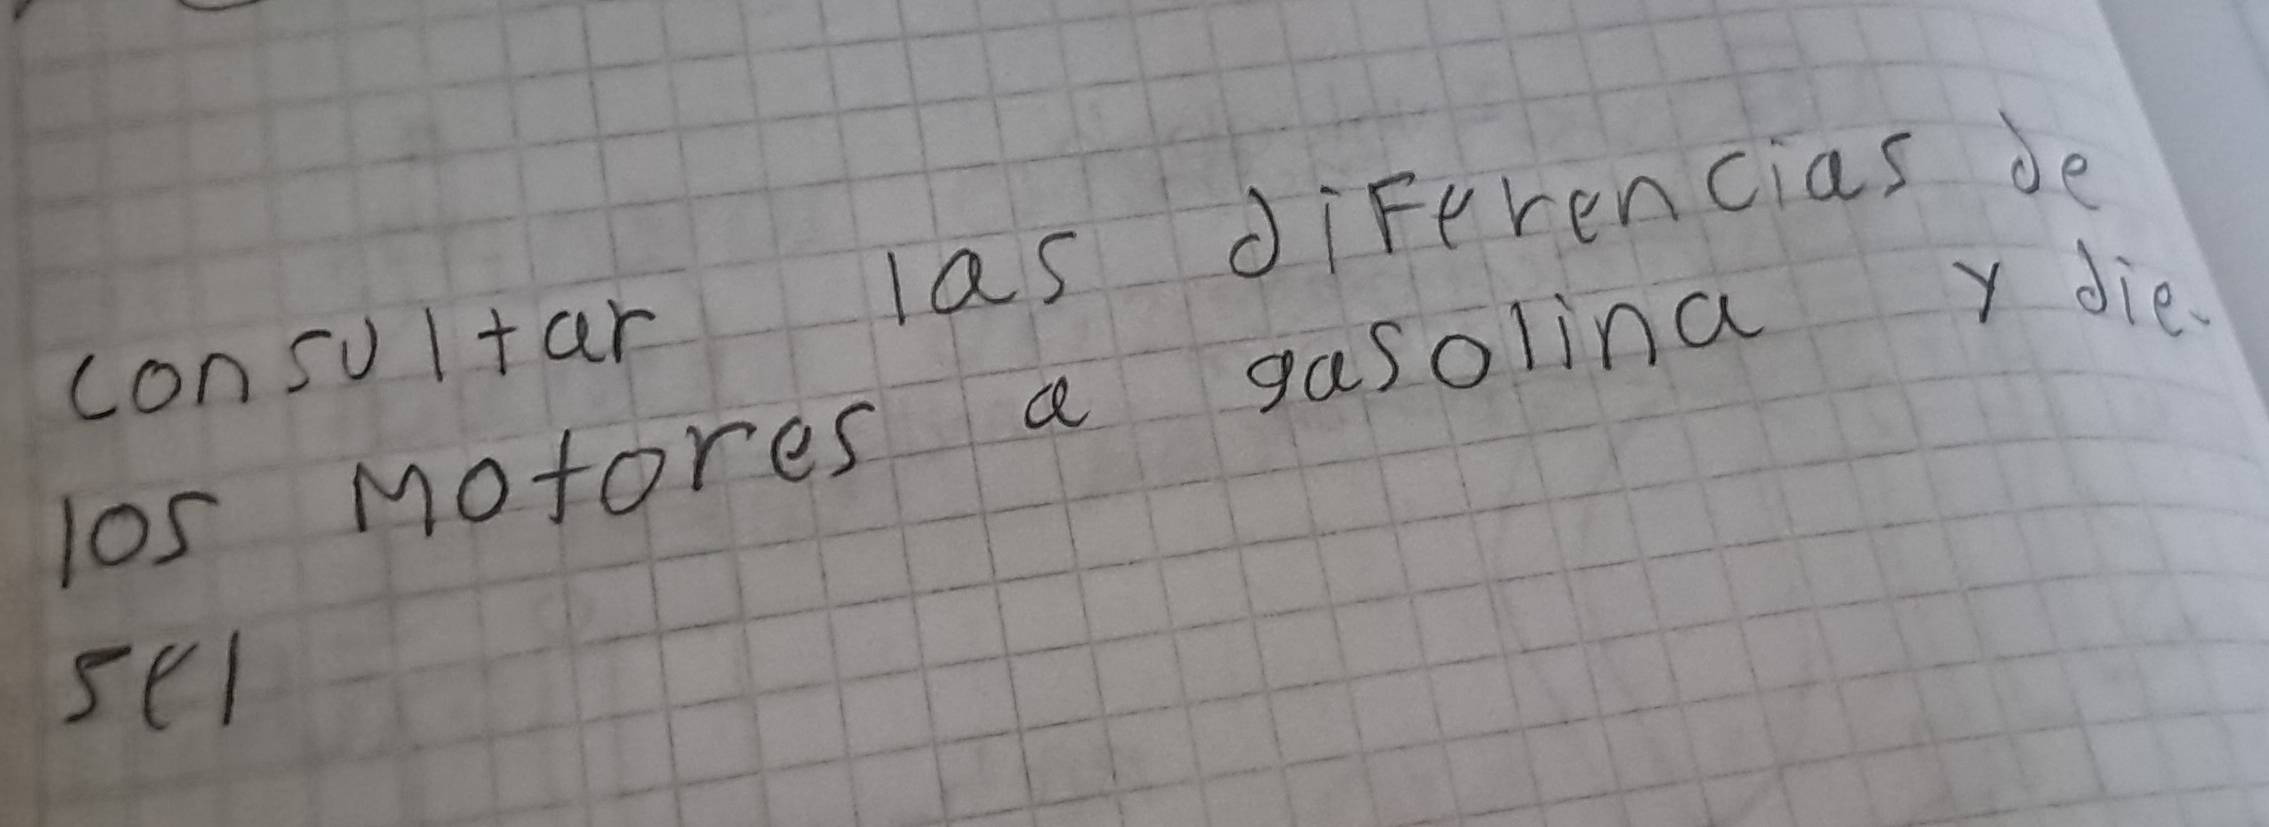 consultar las diferencias de
los Motores a gasolina y die-
sel